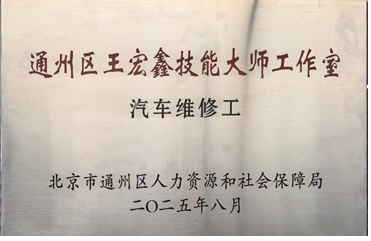 通州区王宏鑫技能大师工作室
汽车维修工
北京市通州区人力资源和社会保障局
二〇二五年八月